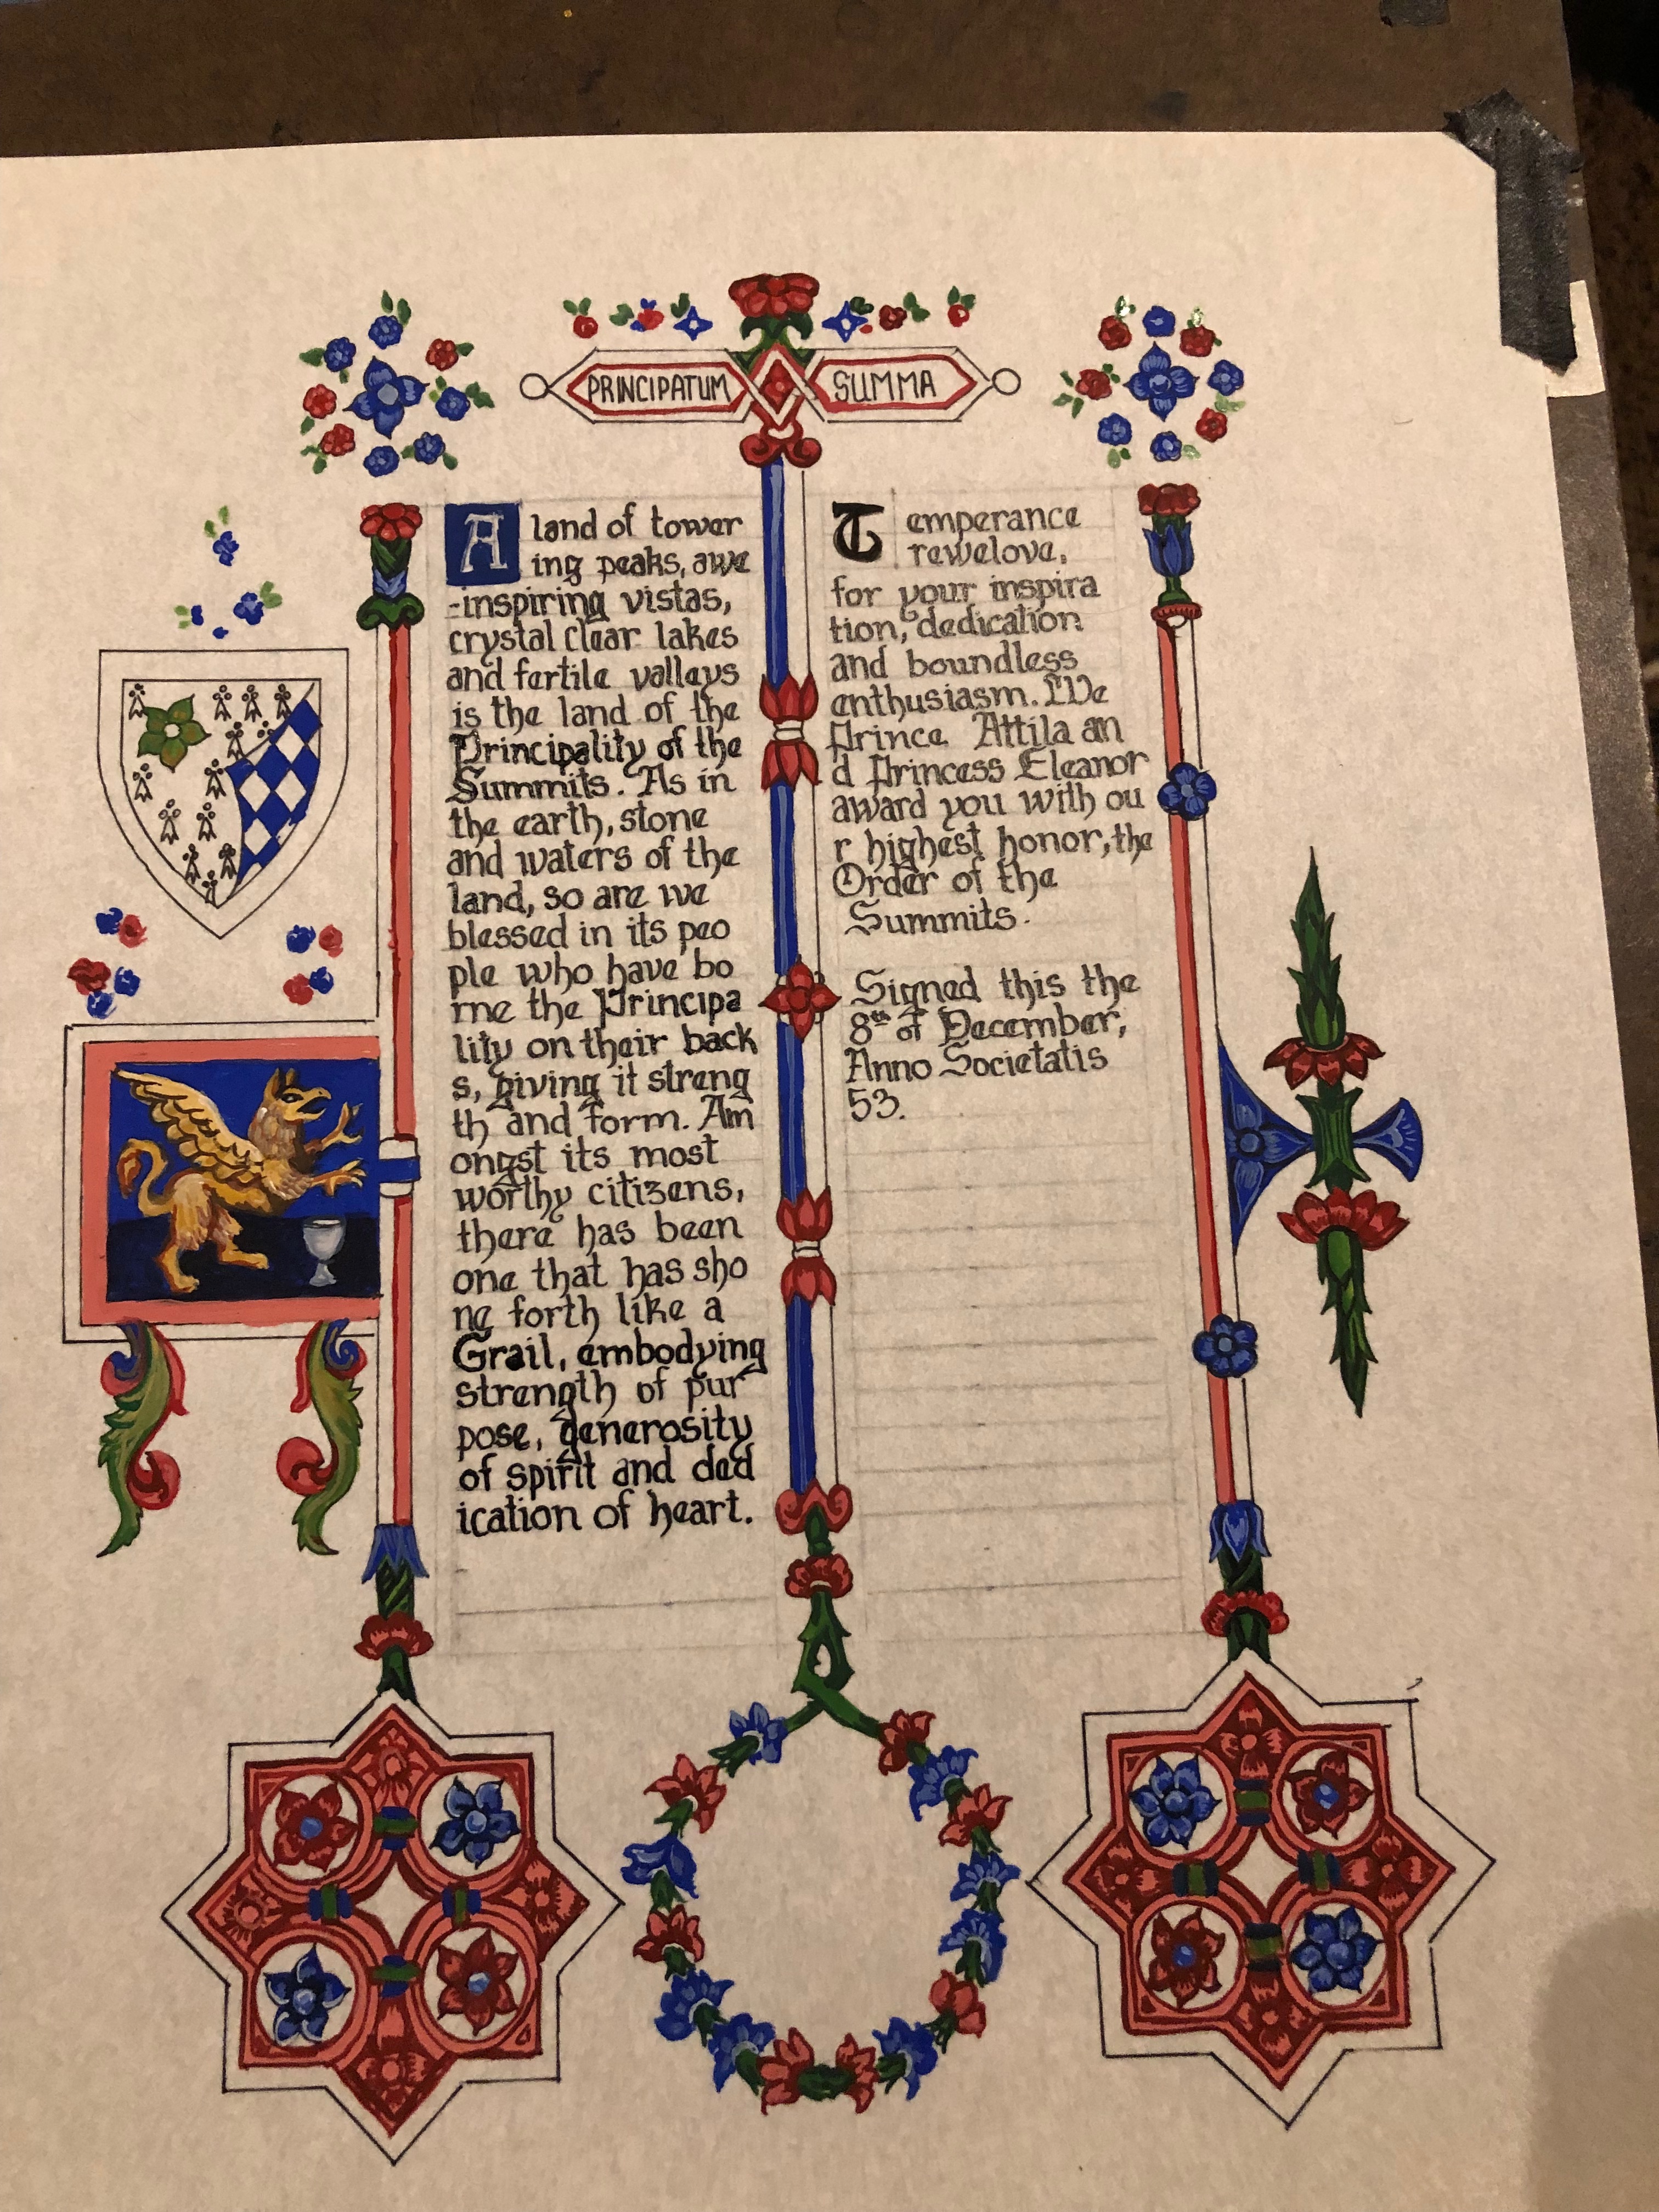 PRINCIPATUM SUMMA
A land of tower
ing peaks, awe
-inspiring vistas,
crystal clear lakes
and fertile valleys
is the land of the
Principality of the
Summits. As in
the earth, stone
and waters of the
land, so are we
blessed in its peo
ple who have bo
rne the Principa
lity on their back
s, giving it streng
th and form. Am
ongst its most
worthy citizens,
there has been
one that has sho
ne forth like a
Grail, embodying
strength of pur
pose, generosity
of spirit and ded
ication of heart.
Temperance
Trewelove,
for your inspira
tion, dedication
and boundless
enthusiasm. We
Prince Attila an
d Princess Eleanor
award you with ou
r highest honor, the
Order of the
Summits.
Signed this the
8th of December,
Anno Societatis
53.